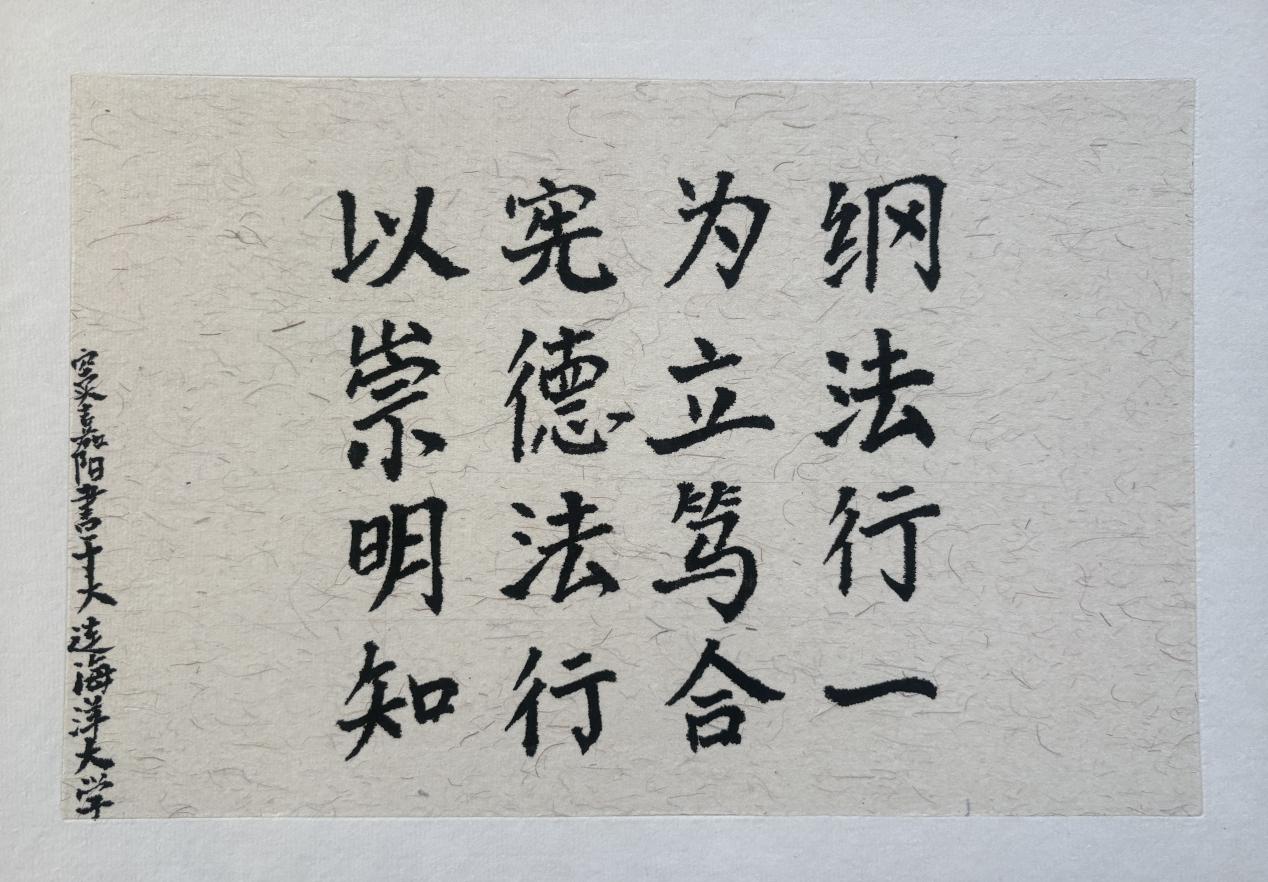 以宪为纲
崇德立法
明法笃行
知行合一
阳書于大连海洋大学